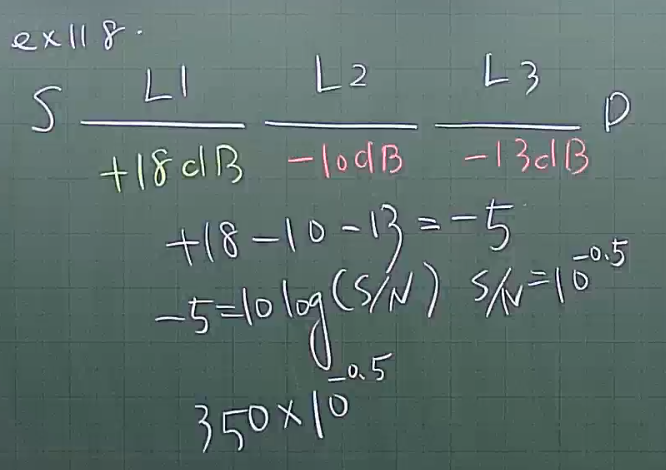 ex118.
S L1 L2 L3 D
+18dB -10dB -13dB
+18-10-13=-5
-5=10log(S/N) S/N=10^-0.5
350×10^-0.5